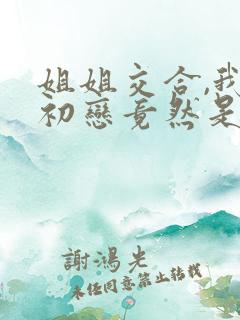 姐姐交合,我
初戀竟然是
謝鴻光
未经同意禁止转载